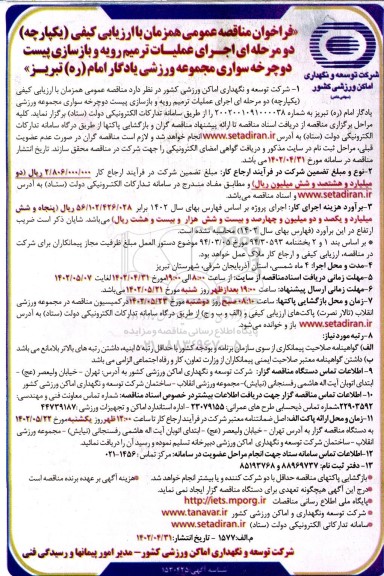 «فراخوان مناقصه عمومی همزمان با ارزیابی کیفی (یکپارچه)
دو مرحله ای اجرای عملیات ترمیم رویه و بازسازی پیست
دوچرخه سواری مجموعه ورزشی یادگار امام (ره) تبریز»
شرکت توسعه و نگهداری
اماکن ورزشی کشور
۱- شرکت توسعه و نگهداری اماکن ورزشی کشور در نظر دارد مناقصه عمومی همزمان با ارزیابی کیفی
(یکپارچه) دو مرحله ای اجرای عملیات ترمیم رویه و بازسازی پیست دوچرخه سواری مجموعه ورزشی
یادگار امام (ره) تبریز به شماره ۲۰۰۲۰۰۱۰۹۱۰۰۰۰۳۸ را از طریق سامانه تدارکات الکترونیکی دولت (ستاد) برگزار نماید. کلیه
مراحل برگزاری مناقصه از دریافت اسناد مناقصه تا ارائه پیشنهاد مناقصه گران و بازگشایی پاکتها از طریق درگاه سامانه تدارکات
الکترونیکی دولت (ستاد) به آدرس www.setadiran.ir انجام خواهد شد و لازم است مناقصه گران در صورت عدم عضویت
قبلی، مراحل ثبت نام در سایت مذکور و دریافت گواهی امضای الکترونیکی را جهت شرکت در مناقصه محقق سازند. تاریخ انتشار
مناقصه در سامانه مورخ ۱۴۰۲/۰۴/۳۱ می باشد.
۲- نوع و مبلغ تضمین شرکت در فرآیند ارجاع کار: مبلغ تضمین شرکت در فرآیند ارجاع کار ۲/۸۰۶/۰۰۰/۰۰۰ ریال (دو
میلیارد و هشتصد و شش میلیون ریال) و مطابق مفاد مندرج در سامانه تدارکات الکترونیکی دولت (ستاد) به آدرس
www.setadiran.ir و اسناد مناقصه می باشد.
۳- برآورد هزینه اجرای کار: اجرای پروژه بر اساس فهارس بهای سال ۱۴۰۲ برابر ۵۶/۱۰۲/۴۲۶/۰۳۸ ریال (پنجاه و شش
میلیارد و یکصد و دو میلیون و چهارصد و بیست و شش هزار و بیست و هشت ریال) می باشد، شایان ذکر است ضریب
ارتفاع در این برآورد (فهارس بهای سال ۱۴۰۲) محاسبه شده است.
* بر اساس بند ۱ و ۲ بخشنامه ۹۴/۳۰۵۹۳ مورخ ۹۴/۰۳/۰۵ موضوع دستور العمل مبلغ ظرفیت مجاز پیمانکاران برای شرکت
در مناقصه، ارزیابی کیفی و ارجاع کار ملاک عمل خواهد بود.
۴- مدت و محل اجرا: ۴ ماه شمسی، استان آذربایجان شرقی، شهرستان تبریز
۵- مهلت زمانی دریافت اسناد مناقصه از سایت: از ساعت ۰۸:۰۰ الی ۱۹:۰۰ مورخ ۱۴۰۲/۰۴/۳۱ لغایت ۱۴۰۲/۰۵/۰۷
۶- مهلت زمانی ارسال پیشنهاد: ساعت ۱۹:۰۰ بعدازظهر روز شنبه مورخ ۱۴۰۲/۰۵/۲۱ می باشد.
۷- زمان و محل بازگشایی پاکتها: ساعت ۰۸:۱۰ صبح روز دوشنبه مورخ ۱۴۰۲/۰۵/۲۳ در کمیسیون مناقصه در مجموعه ورزشی
انقلاب (تالار نصرت) پاکت‌های ارزیابی کیفی و (الف و ب و ج) از طریق درگاه سامانه تدارکات الکترونیکی دولت (ستاد) به آدرس
www.setadiran.ir باز و خوانده می شود.
۸- رتبه مورد نیاز:
الف) گواهینامه صلاحیت پیمانکاری از سوی سازمان برنامه و بودجه کشور با حداقل رتبه ۵ ابنیه، داشتن رتبه های بالاتر بلامانع می باشد
ب) داشتن گواهینامه معتبر صلاحیت ایمنی پیمانکاران از وزارت تعاون، کار و رفاه اجتماعی الزامی می باشد
۹- اطلاعات تماس دستگاه مناقصه گزار: شرکت توسعه و نگهداری اماکن ورزشی کشور به آدرس: تهران - خیابان ولیعصر (عج) -
ابتدای اتوبان آیت اله هاشمی رفسنجانی (نیایش) - مجموعه ورزشی انقلاب - ساختمان شرکت توسعه و نگهداری اماکن ورزشی کشور
۱۰- اطلاعات تماس دستگاه مناقصه گزار جهت دریافت اطلاعات بیشتر در خصوص اسناد مناقصه: شماره تماس معاونت فنی و مهندسی:
۲۲۹۰۳۵۹۲ شماره تماس ذیحسابی طرح های عمرانی: ۲۳۰۷۹۱۵۵ - اداره استاندارد اماکن و تجهیزات ورزشی ۴۴۷۳۹۱۸۷
۱۱- زمان و محل ارائه پاکت الف: اصل ضمانتنامه معتبر شرکت در فرآیند ارجاع کار تا ساعت ۱۲:۰۰ ظهر روز یکشنبه مورخ ۱۴۰۲/۰۵/۲۲
به دستگاه مناقصه گزار به آدرس تهران - خیابان ولیعصر (عج) - ابتدای اتوبان آیت اله هاشمی رفسنجانی (نیایش) - مجموعه ورزشی
انقلاب - ساختمان شرکت توسعه و نگهداری اماکن ورزشی دبیرخانه تسلیم نموده و رسید آن را دریافت نمائید
۱۲- اطلاعات تماس سامانه ستاد جهت انجام مراحل عضویت در سامانه: مرکز تماس: ۱۴۵۶-۰۲۱
۱۳- دفتر ثبت نام: ۸۸۹۶۹۷۳۷ و ۸۵۱۹۳۷۶۸
*بازگشایی پاکتهای مناقصه حداقل با دو شرکت کننده و یا بیشتر انجام خواهد شد. *هزینه آگهی بر عهده برنده مناقصه است
*درج این آگهی هیچگونه تعهدی برای دستگاه مناقصه گزار ایجاد نمی نماید.
*پایگاه ملی اطلاع رسانی مناقصات http://iets.mporg.ir
*شرکت توسعه و نگهداری و اماکن ورزشی کشور www.tanavar.ir
*سامانه تدارکاتی الکترونیکی دولت (ستاد) www.setadiran.ir
م.الف: ۱۵۷۷ - تاریخ انتشار: ۱۴۰۲/۰۴/۳۱
شرکت توسعه و نگهداری اماکن ورزشی کشور – مدیر امور پیمانها و رسیدگی فنی
شناسه آگهی ۱۵۳۰۲۳۵